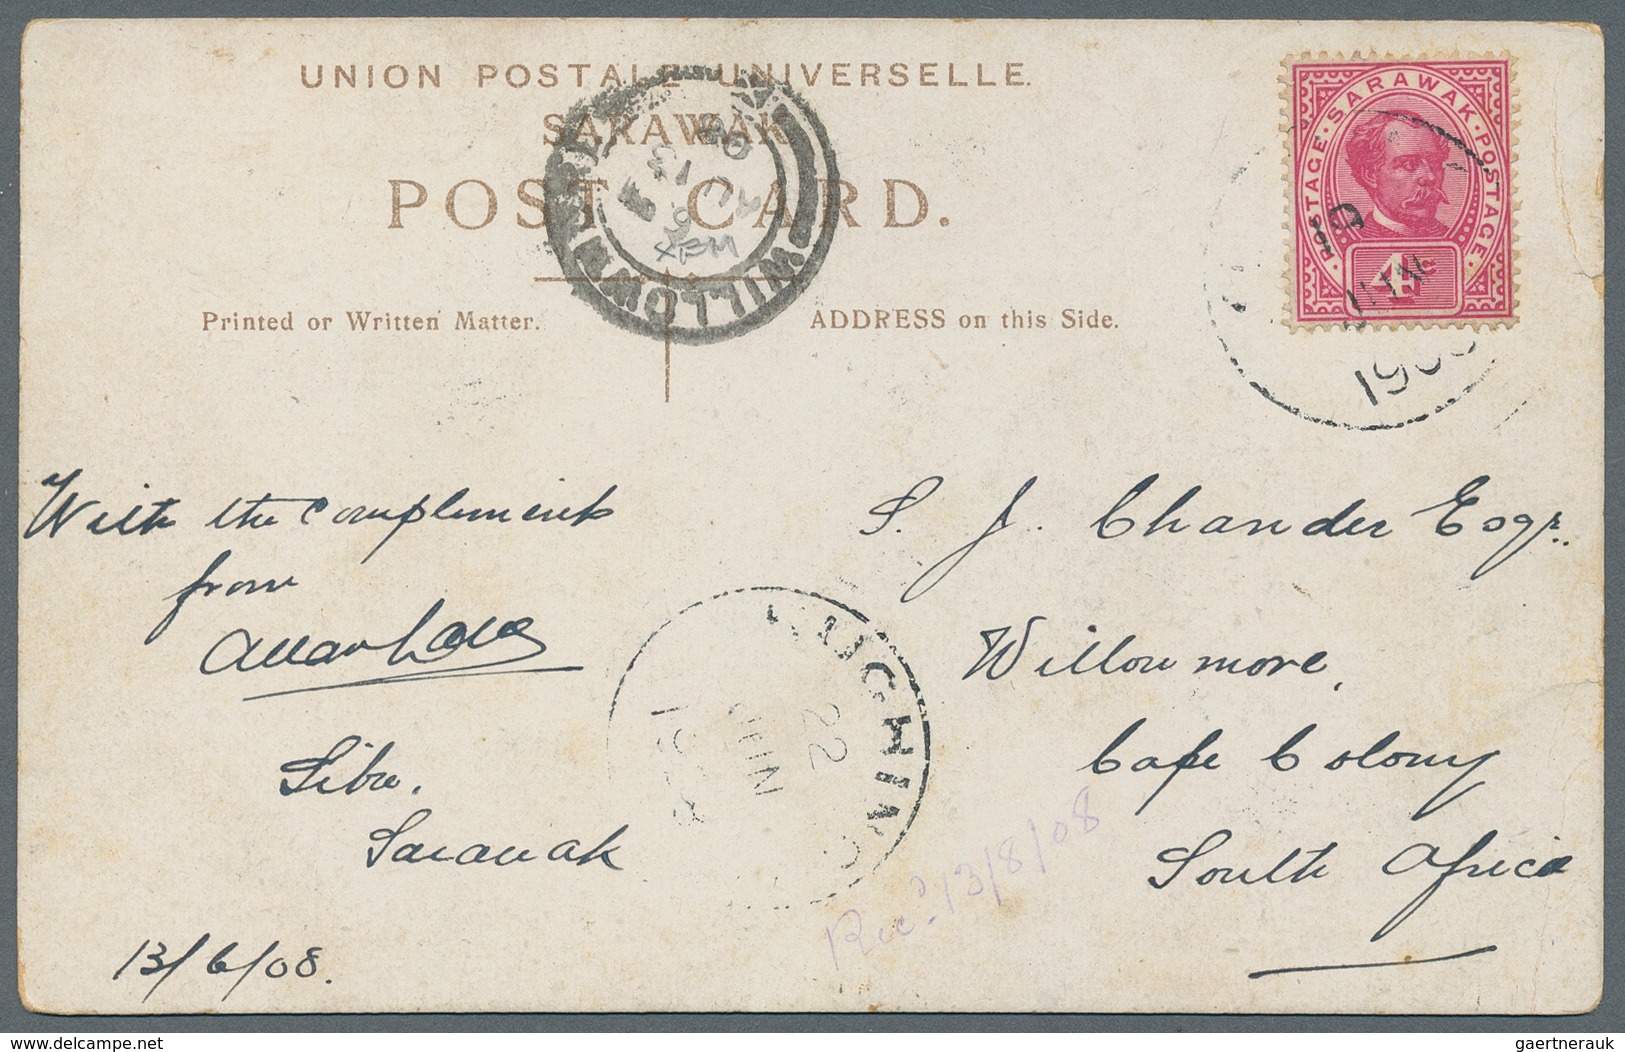 UNION POSTALE UNIVERSELLE.
SARAWAK
POST CARD.
Printed or Written Matter.
ADDRESS on this Side.
POSTAGE · SARAWAK · POSTAGE
4c
19
JUN
WILLOWMORE
AU 13
08
With the compliments
from
Sibu.
Sarawak
13/6/08.
S. J. Chander Esqr.
Willowmore,
Cape Colony
South Africa
KUCHING
22
JUN
Recd. 13/8/08
www.delcampe.net
gaertnerauk